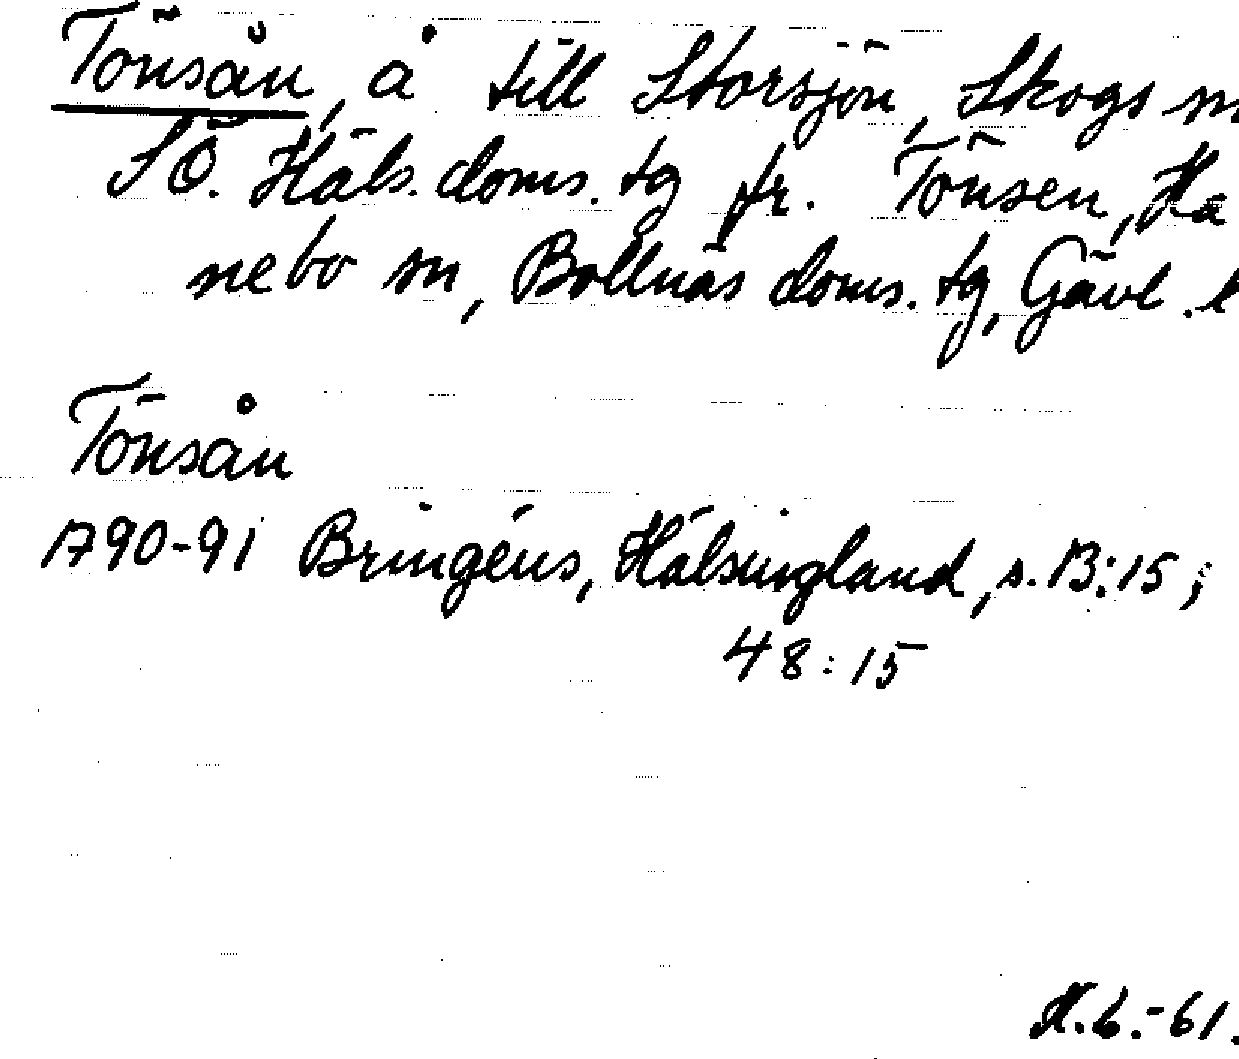 Tönsån, å till Storsjön, Skogs sn
SÖ. Häls. doms. tg fr. Tönsen, Ha
nebo sn, Bollnäs doms. tg, Gävl. l
Tönsån
1790-91 Bringéus, Hälsingland, s. 13:15;
48:15
H.G.-61.